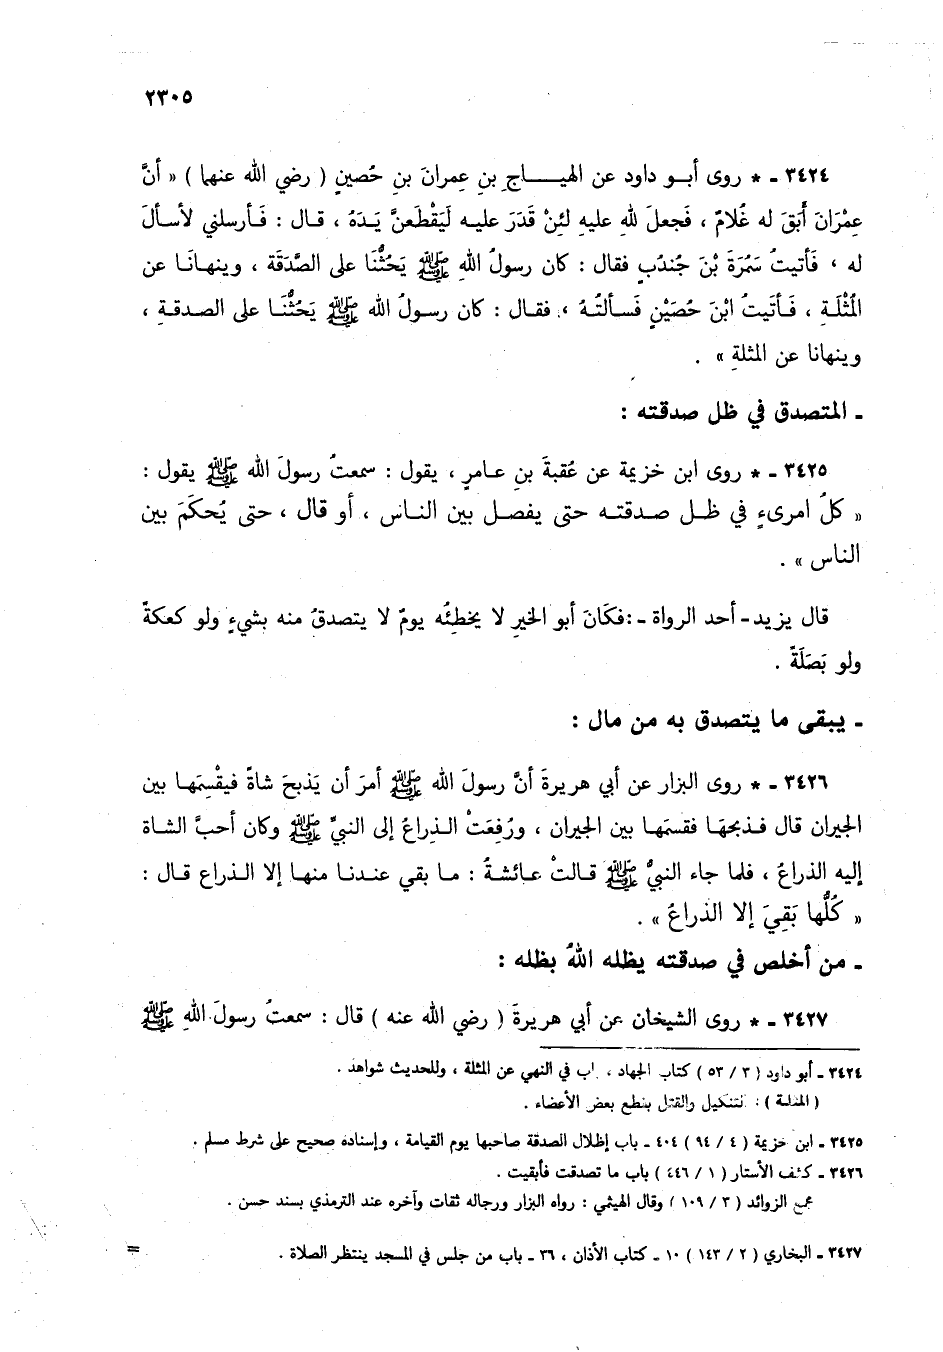 ٢٣٠٥
٣٤٢٤ ـ * روى أبـو داود عن الهيـــاج بنِ عِمرانَ بنِ حُصينٍ ( رضي الله عنهما ) « أنَّ
عِمْرَانَ أَبَقَ له غُلامٌ ، فَجعلَ للهِ عليهِ لئِنْ قَدَرَ عليـه لَيَقْطَعنَّ يَـدَهُ ، قـال : فَـأرسلني لأسألَ
له ، فَأتيتُ سَمُرَةَ بْنَ جُندُبٍ فقال : كان رسولُ اللهِ ﷺ يَحُثُّنَا على الصَّدَقَة ، وينهـانَـا عن
المُثْلَـةِ ، فَـأتيتُ ابْنَ حُصَيْنٍ فَسـألتُـهُ ، فقـال : كان رسـولُ الله ﷺ يَحُثُّنَـا على الصـدقـةِ ،
وينهانا عن المثلةِ » .
ـ المتصدق في ظل صدقته :
٣٤٢٥ ـ * روى ابن خزيمة عن عُقبةَ بنِ عـامرٍ ، يقول : سمعتُ رسولَ الله ﷺ يقول :
« كلُّ امرىءٍ في ظـل صـدقتـه حتى يفصـل بين النـاس ، أو قال ، حتى يُحكَمَ بين
الناس » .
قال يزيد ـ أحد الرواة ـ : فكَانَ أبو الخيرِ لا يخطِئُه يومٌ لا يتصدقُ منه بشيءٍ ولو كعكةً
ولو بَصَلَةً .
ـ يبقى ما يتصدق به من مال :
٣٤٢٦ ـ * روى البزار عن أبي هريرةَ أنَّ رسولَ الله ﷺ أمرَ أن يَذبحَ شاةً فيقْسِمَهـا بين
الجيران قال فـذبحهَـا فقسمَهـا بين الجيران ، ورُفِعَتْ الـذِراعُ إلى النبيِّ ﷺ وكان أحبَّ الشـاة
إليه الذراعُ ، فلما جاء النبيُّ ﷺ قـالتْ عـائشـةُ : مـا بقي عنـدنـا منهـا إلا الـذراع قـال :
« كُلُّها بَقِيَ إلا الذراعُ » .
ـ من أخلص في صدقته يظله اللهُ بظله :
٣٤٢٧ ـ * روى الشيخان عن أبي هريرةَ ( رضي الله عنه ) قال : سمعتُ رسولَ اللهِ ﷺ
٣٤٢٤ ـ أبو داود ( ٣ / ٥٣ ) كتاب الجهاد ، باب في النهي عن المثلة ، وللحديث شواهد .
( المثلة ) : التنكيل والقتل بقطع بعض الأعضاء .
٣٤٢٥ ـ ابن خزيمة ( ٤ / ٩٤ ) ٤٠٤ ـ باب إظلال الصدقة صاحبها يوم القيامة ، وإسناده صحيح على شرط مسلم .
٣٤٢٦ ـ كشف الأستار ( ١ / ٤٤٦ ) باب ما تصدقت فأبقيت .
مجمع الزوائد ( ٣ / ١٠٩ ) وقال الهيثمي : رواه البزار ورجاله ثقات وآخره عند الترمذي بسند حسن .
٣٤٢٧ ـ البخاري ( ٢ / ١٤٣ ) ١٠ ـ كتاب الأذان ، ٣٦ ـ باب من جلس في المسجد ينتظر الصلاة . =